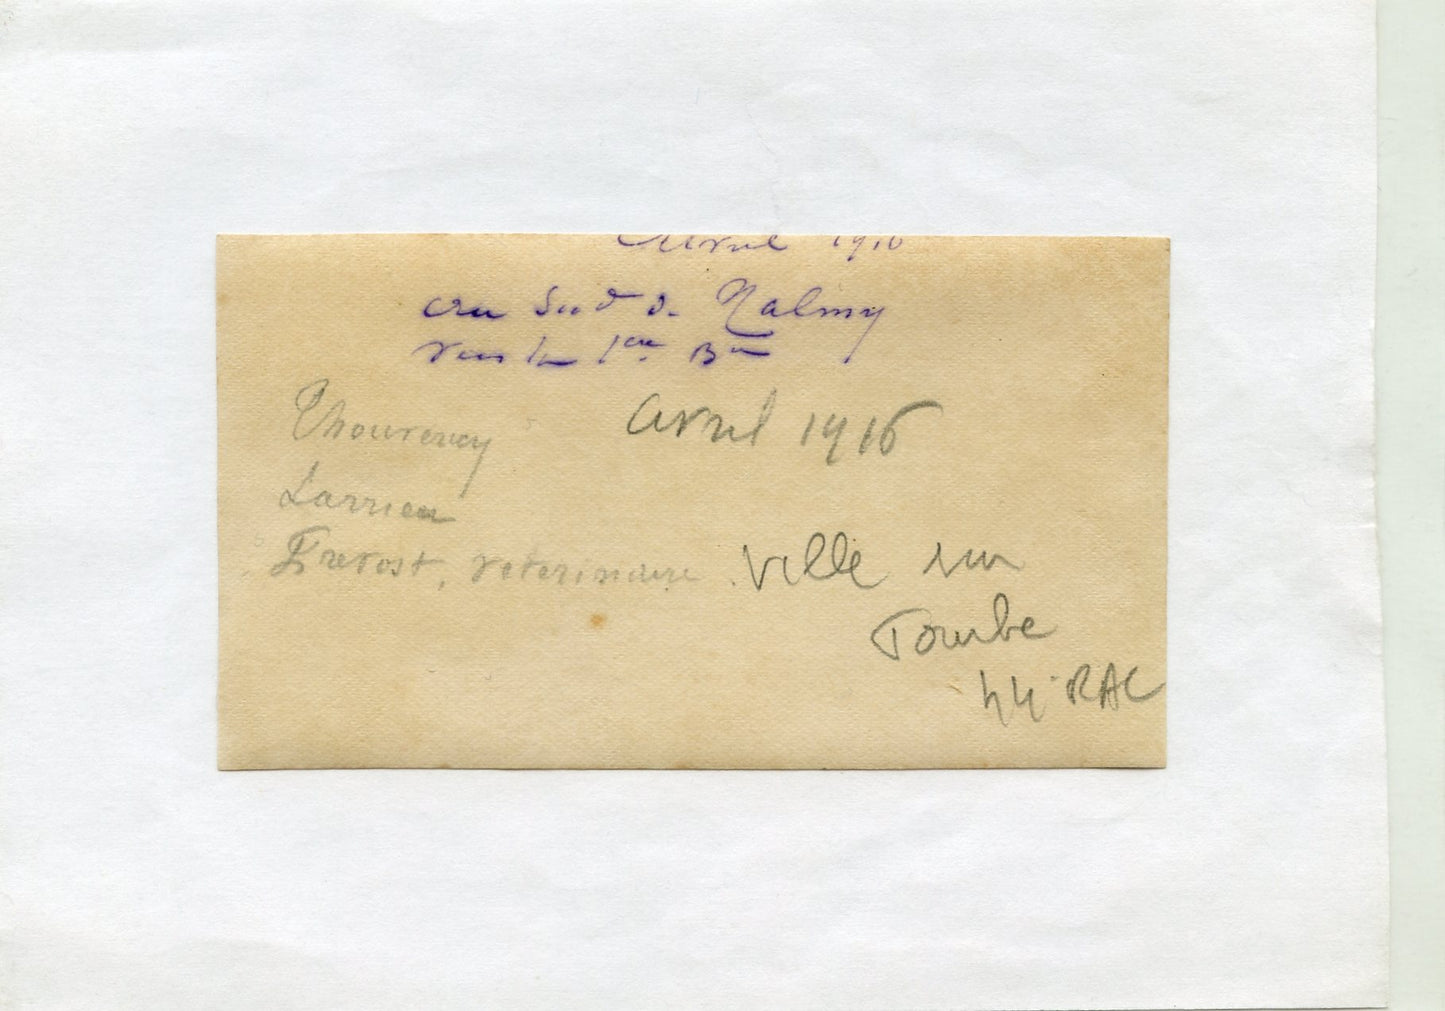 Avril 1916
au Sud d. Nalmy
vers la 1ère Bie
Thouvency
avril 1916
Larrieu
Prevost, veterinaire
Ville sur
Tourbe
44e RAC